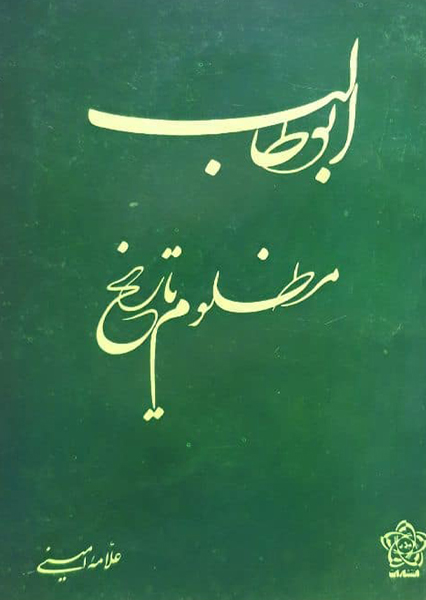 ابوطالب
مظلوم تاریخ
علامه امینی